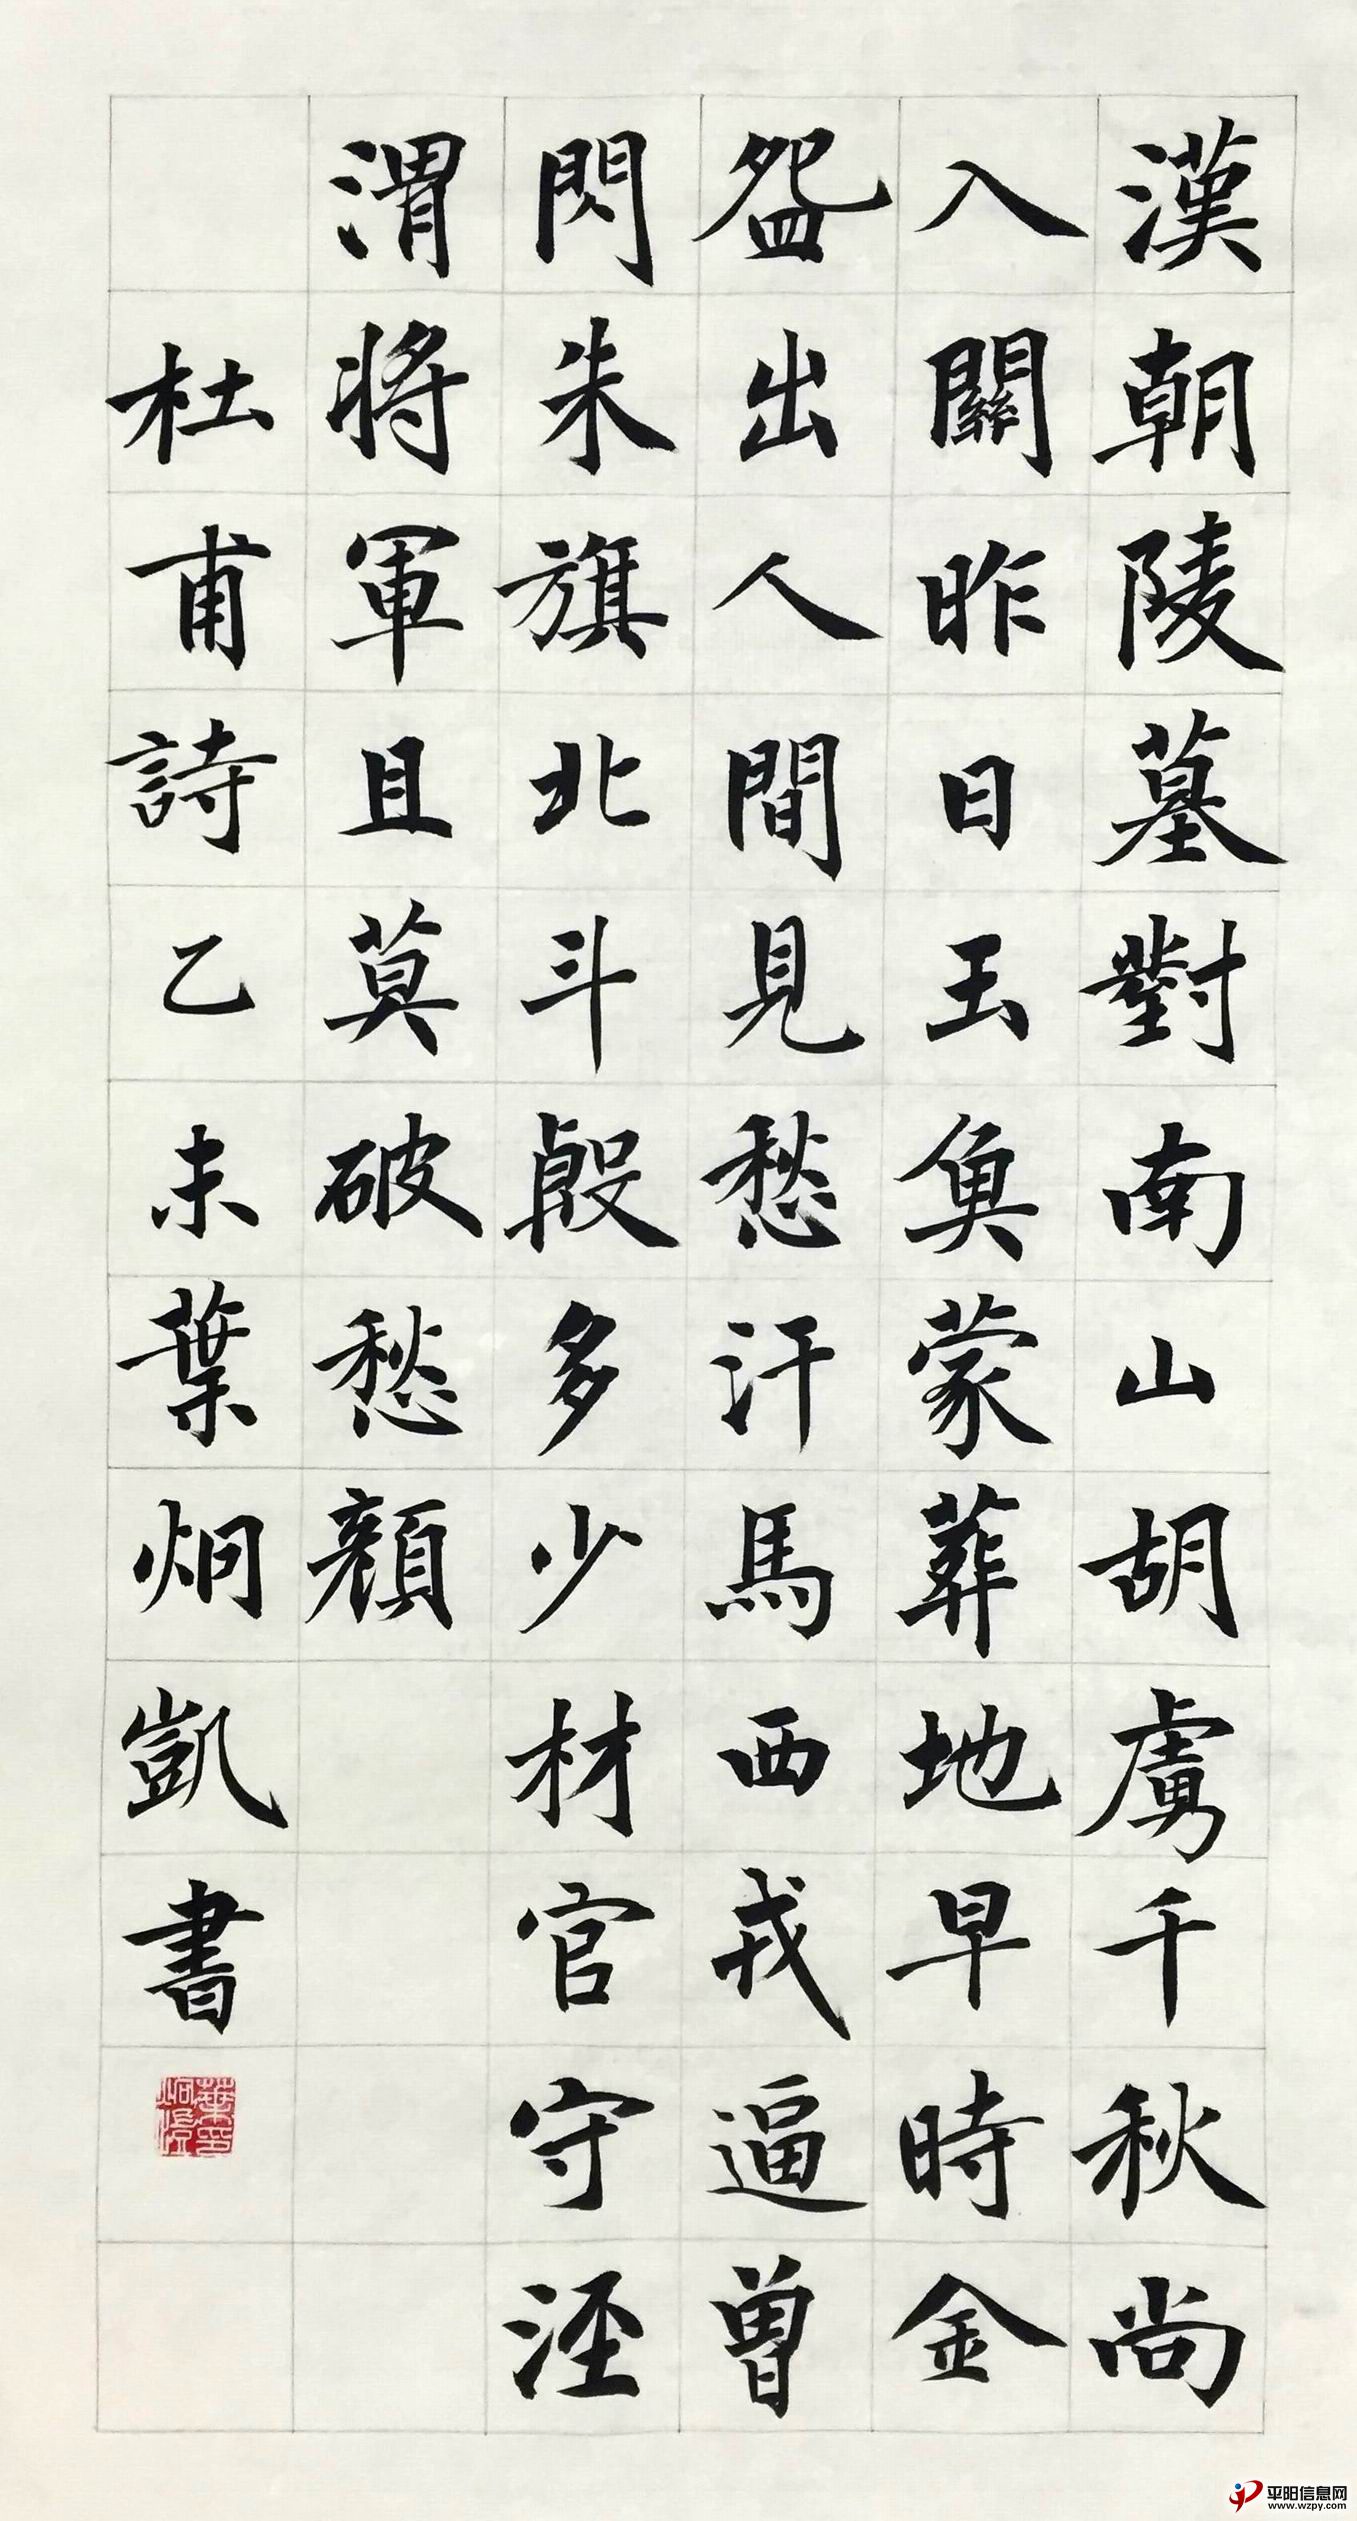 漢朝陵墓對南山胡虜千秋尚
入關昨日玉魚蒙葬地早時金
盌出人間見愁汗馬西戎逼曾
閃朱旗北斗殷多少材官守涇
渭將軍且莫破愁顏
杜甫詩乙未葉炯凱書
平阳信息网
www.wzpy.com